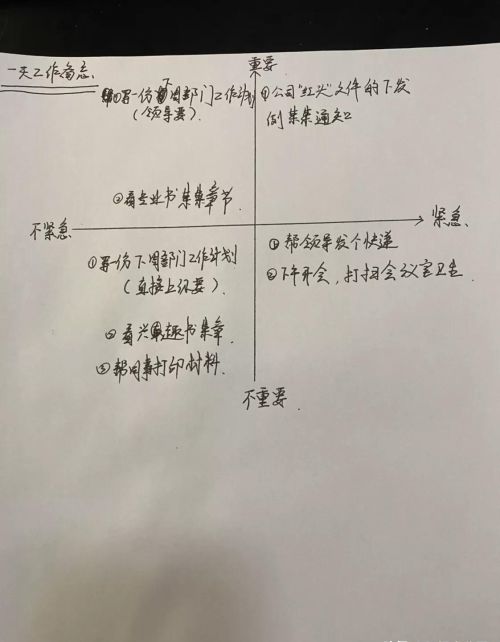 一天工作备忘
重要
①写一份下周部门工作计划
(领导要).
①公司"红头"文件的下发
例某某通知
②看专业书某某章节
不紧急
紧急.
①写一份下周部门工作计划
(直接上级要).
①帮领导发个快递
②下午开会,打扫会议室卫生.
②看兴趣书某章.
③帮同事打印材料.
不重要.